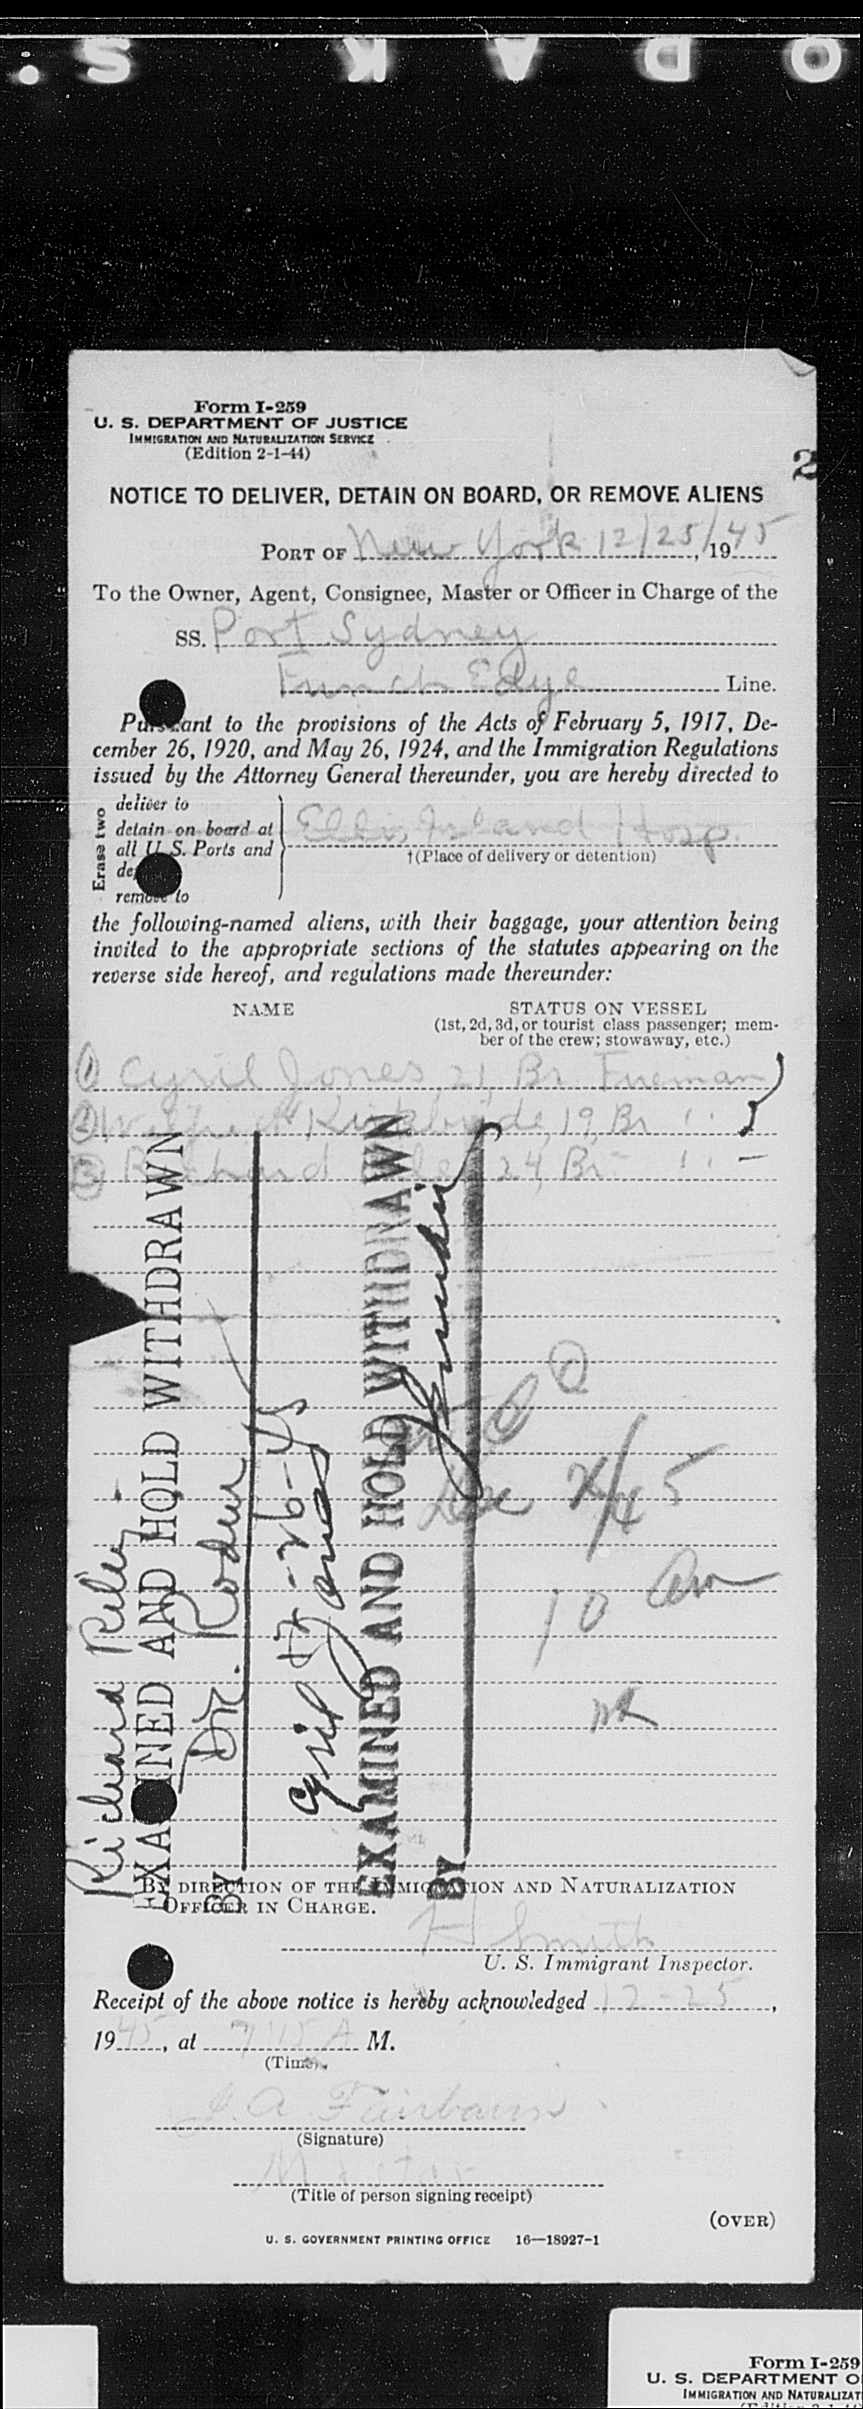 S. K A D O
Form I-259
U. S. DEPARTMENT OF JUSTICE
IMMIGRATION AND NATURALIZATION SERVICE
(Edition 2-1-44)
2
NOTICE TO DELIVER, DETAIN ON BOARD, OR REMOVE ALIENS
PORT OF New York 12/25/, 1945
To the Owner, Agent, Consignee, Master or Officer in Charge of the
SS. Port Sydney
Funch Edye Line.
Pursuant to the provisions of the Acts of February 5, 1917, De-
cember 26, 1920, and May 26, 1924, and the Immigration Regulations
issued by the Attorney General thereunder, you are hereby directed to
Erase two
deliver to
detain on board at
all U. S. Ports and
remove to
Ellis Island Hosp.
†(Place of delivery or detention)
the following-named aliens, with their baggage, your attention being
invited to the appropriate sections of the statutes appearing on the
reverse side hereof, and regulations made thereunder:
NAME
STATUS ON VESSEL
(1st, 2d, 3d, or tourist class passenger; mem-
ber of the crew; stowaway, etc.)
1 Cyril Jones, 21, Br. Fireman
2 Kirkbride, 19, Br " 
3 Richard 24, Br - " -
Richard Riley
EXAMINED AND HOLD WITHDRAWN
Dr.
BY
12-26-45
Cyril Jones
EXAMINED AND HOLD WITHDRAWN
BY
Dec
10 am
BY DIRECTION OF THE IMMIGRATION AND NATURALIZATION
OFFICER IN CHARGE.
H Smith
U. S. Immigrant Inspector.
Receipt of the above notice is hereby acknowledged 12-25,
1945, at 7:15 A M.
(Time)
J. A. Fairbairn
(Signature)
Master
(Title of person signing receipt)
(OVER)
U. S. GOVERNMENT PRINTING OFFICE 16—18927-1
Form I-259
U. S. DEPARTMENT O
IMMIGRATION AND NATURALIZAT